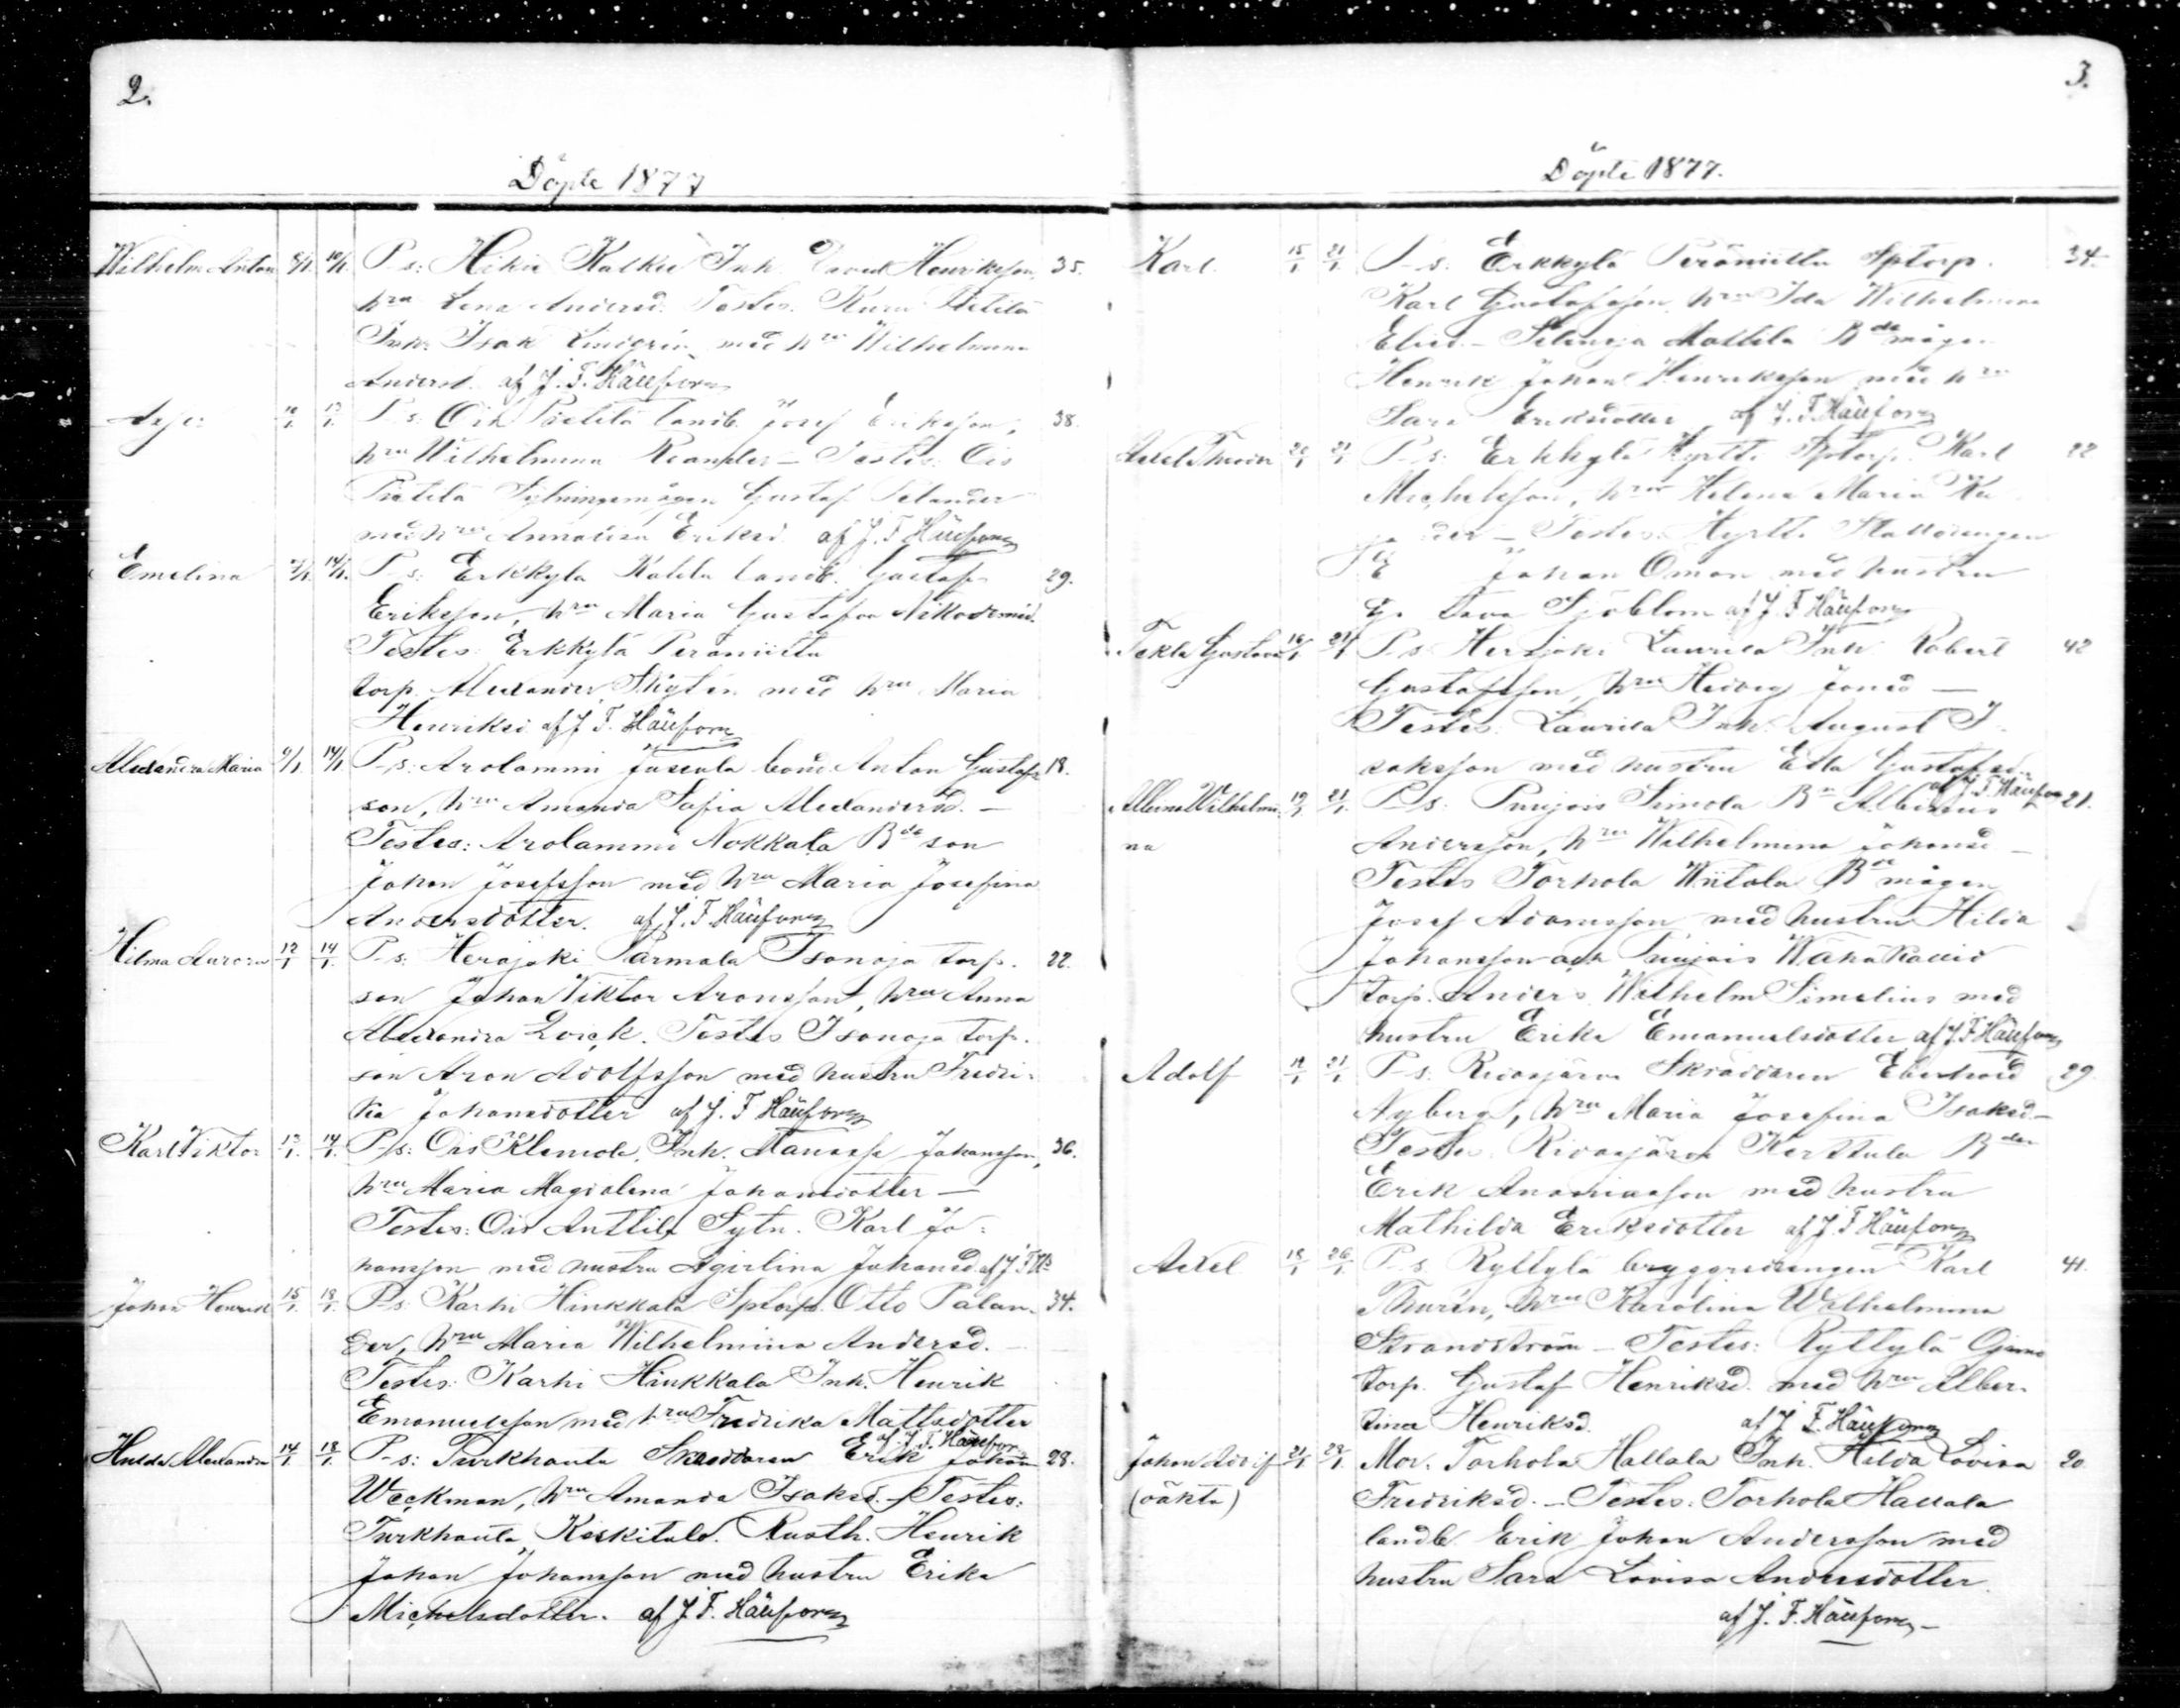 2.
Döpte 1877
Wilhelm Anton 8/1 14/1 P-s: Hikiä Kalkio Inh. David Henriksson, 35.
hru Lena Andersd. Testes. Kuru
Inh. Isak Lindgrén med hru Wilhelmina
Andersd. af J. F. Hällfors
P-s: Ois Pietilä landb. Josef Eriksson, 38.
hru Wilhelmina – Testes: Ois
Pietilä Sytningsmågen Gustaf Selander
med hru Annalisa Eriksd. af J. F. Hällfors
Emelina 14/1 P-s: Erkkylä landb. Gustaf 29.
Eriksson, hru Maria Gustafva Nikodemid.
Testes: Erkkylä Peräniittu
torp. Alexander Skytén med hru Maria
Henriksd af J. F. Hällfors
Alexandra Maria 9/1 14/1 P-s: Arolammi Jussila bond. Anton Gustafs= 18.
son, hru Amanda Sofia Alexandersd. –
Testes: Arolammi Nokkala Bde son
Johan Josefsson med hru Maria Josefina
Andersdotter. af J. F. Hällfors
Hilma Aurora 12/1 14/1 P-s: Herajoki Parmala Isonoja torp. 22.
son Johan Viktor Aronsson, hru Anna
Alexandra Lorck. Testes Isonoja torp.
son Aron Adolfsson med hustru Fredri=
ka Johansdotter af J. F. Hällfors
Karl Viktor 13/1 14/1 P-s: Ois Klemola Inh. Manasse Johansson, 36.
hru Maria Magdalena Johansdotter –
Testes: Ois Anttila Sytn. Karl Jo=
hansson med hustru Agirlina Johansd. af J. F. Hs
Johan Henrik 15/1 18/1 P-s: Karhi Hinkkala Sptorp. Otto Palan= 34.
der, hru Maria Wilhelmina Andersd. –
Testes: Karhi Hinkkala Inh. Henrik
Emanuelsson med hru Fredrika Mattsdotter
af J. F. Hällfors
Hulda Alexandra 14/1 18/1 P-s: Turkhauta Skräddaren Erik Johan 28.
Weckman, hru Amanda Isaksd. – Testes:
Turkhauta Keskitalo Rusth. Henrik
Johan Johansson med hustru Erika
Michelsdotter. af J. F. Hällfors
3.
Döpte 1877.
Karl 15/1 21/1 P-s: Erkkylä Peräniittu Sptorp. 34.
Karl Gustafsson, hru Ida Wilhelmina
Mattila Bde mågen
Henrik Johan Henriksson med hru
Sara Eriksdotter af J. F. Hällfors
Axel 20/1 21/1 P-s: Erkkylä Hyrtti Sptorp. Karl 22
Michelsson, hru Helena Maria
– Testes: Hyrtti Stattdrengen
Johan Öman med hustru
Sjöblom af J. F. Hällfors
Tekla Gustava 16/1 21/1 P-s: Herajoki Laurila Inh Robert 42
Gustafsson, hru Hedvig Jonsd –
Testes: Laurila Inh. August I
saksson med hustru Etla Gustafsd.
af J. F. Hällfors
Albina Wilhelmi= 19/1 21/1 P-s: Puujois Simola Bn Albinus 21.
na Andersson, hru Wilhelmina Johansd –
Testes Torhola Wiitala Bde mågen
Josef Adamsson med hustru Hilda
Johansson och Puujois Wähäkallio
torp. Anders Wilhelm Simelius med
hustru Erika Emanuelsdotter af J. F. Hällfors
Adolf 19/1 21/1 P-s: Ridasjärvi Skräddaren Eberhard 29.
Nyberg, hru Maria Josefina Isaksd –
Testes. Ridasjärvi Kerttula Bden
Erik Ananiasson med hustru
Mathilda Eriksdotter af J. F. Hällfors
Axel 18/1 26/1 P-s: Ryttylä bryggredrengen Karl 41.
Thurén, hru Karolina Wilhelmina
Strandström – Testes: Ryttylä
torp. Gustaf Henriksd. med hru Alber=
tina Henriksd. af J. F. Hällfors
Johan Adolf 21/1 28/1 Mor. Torhola Hallala Inh. Hilda Lovisa 20
(oäkta) Fredriksd. – Testes: Torhola Hallala
landb. Erik Johan Andersson med
hustru Sara Lovisa Andersdotter.
af J. F. Hällfors –